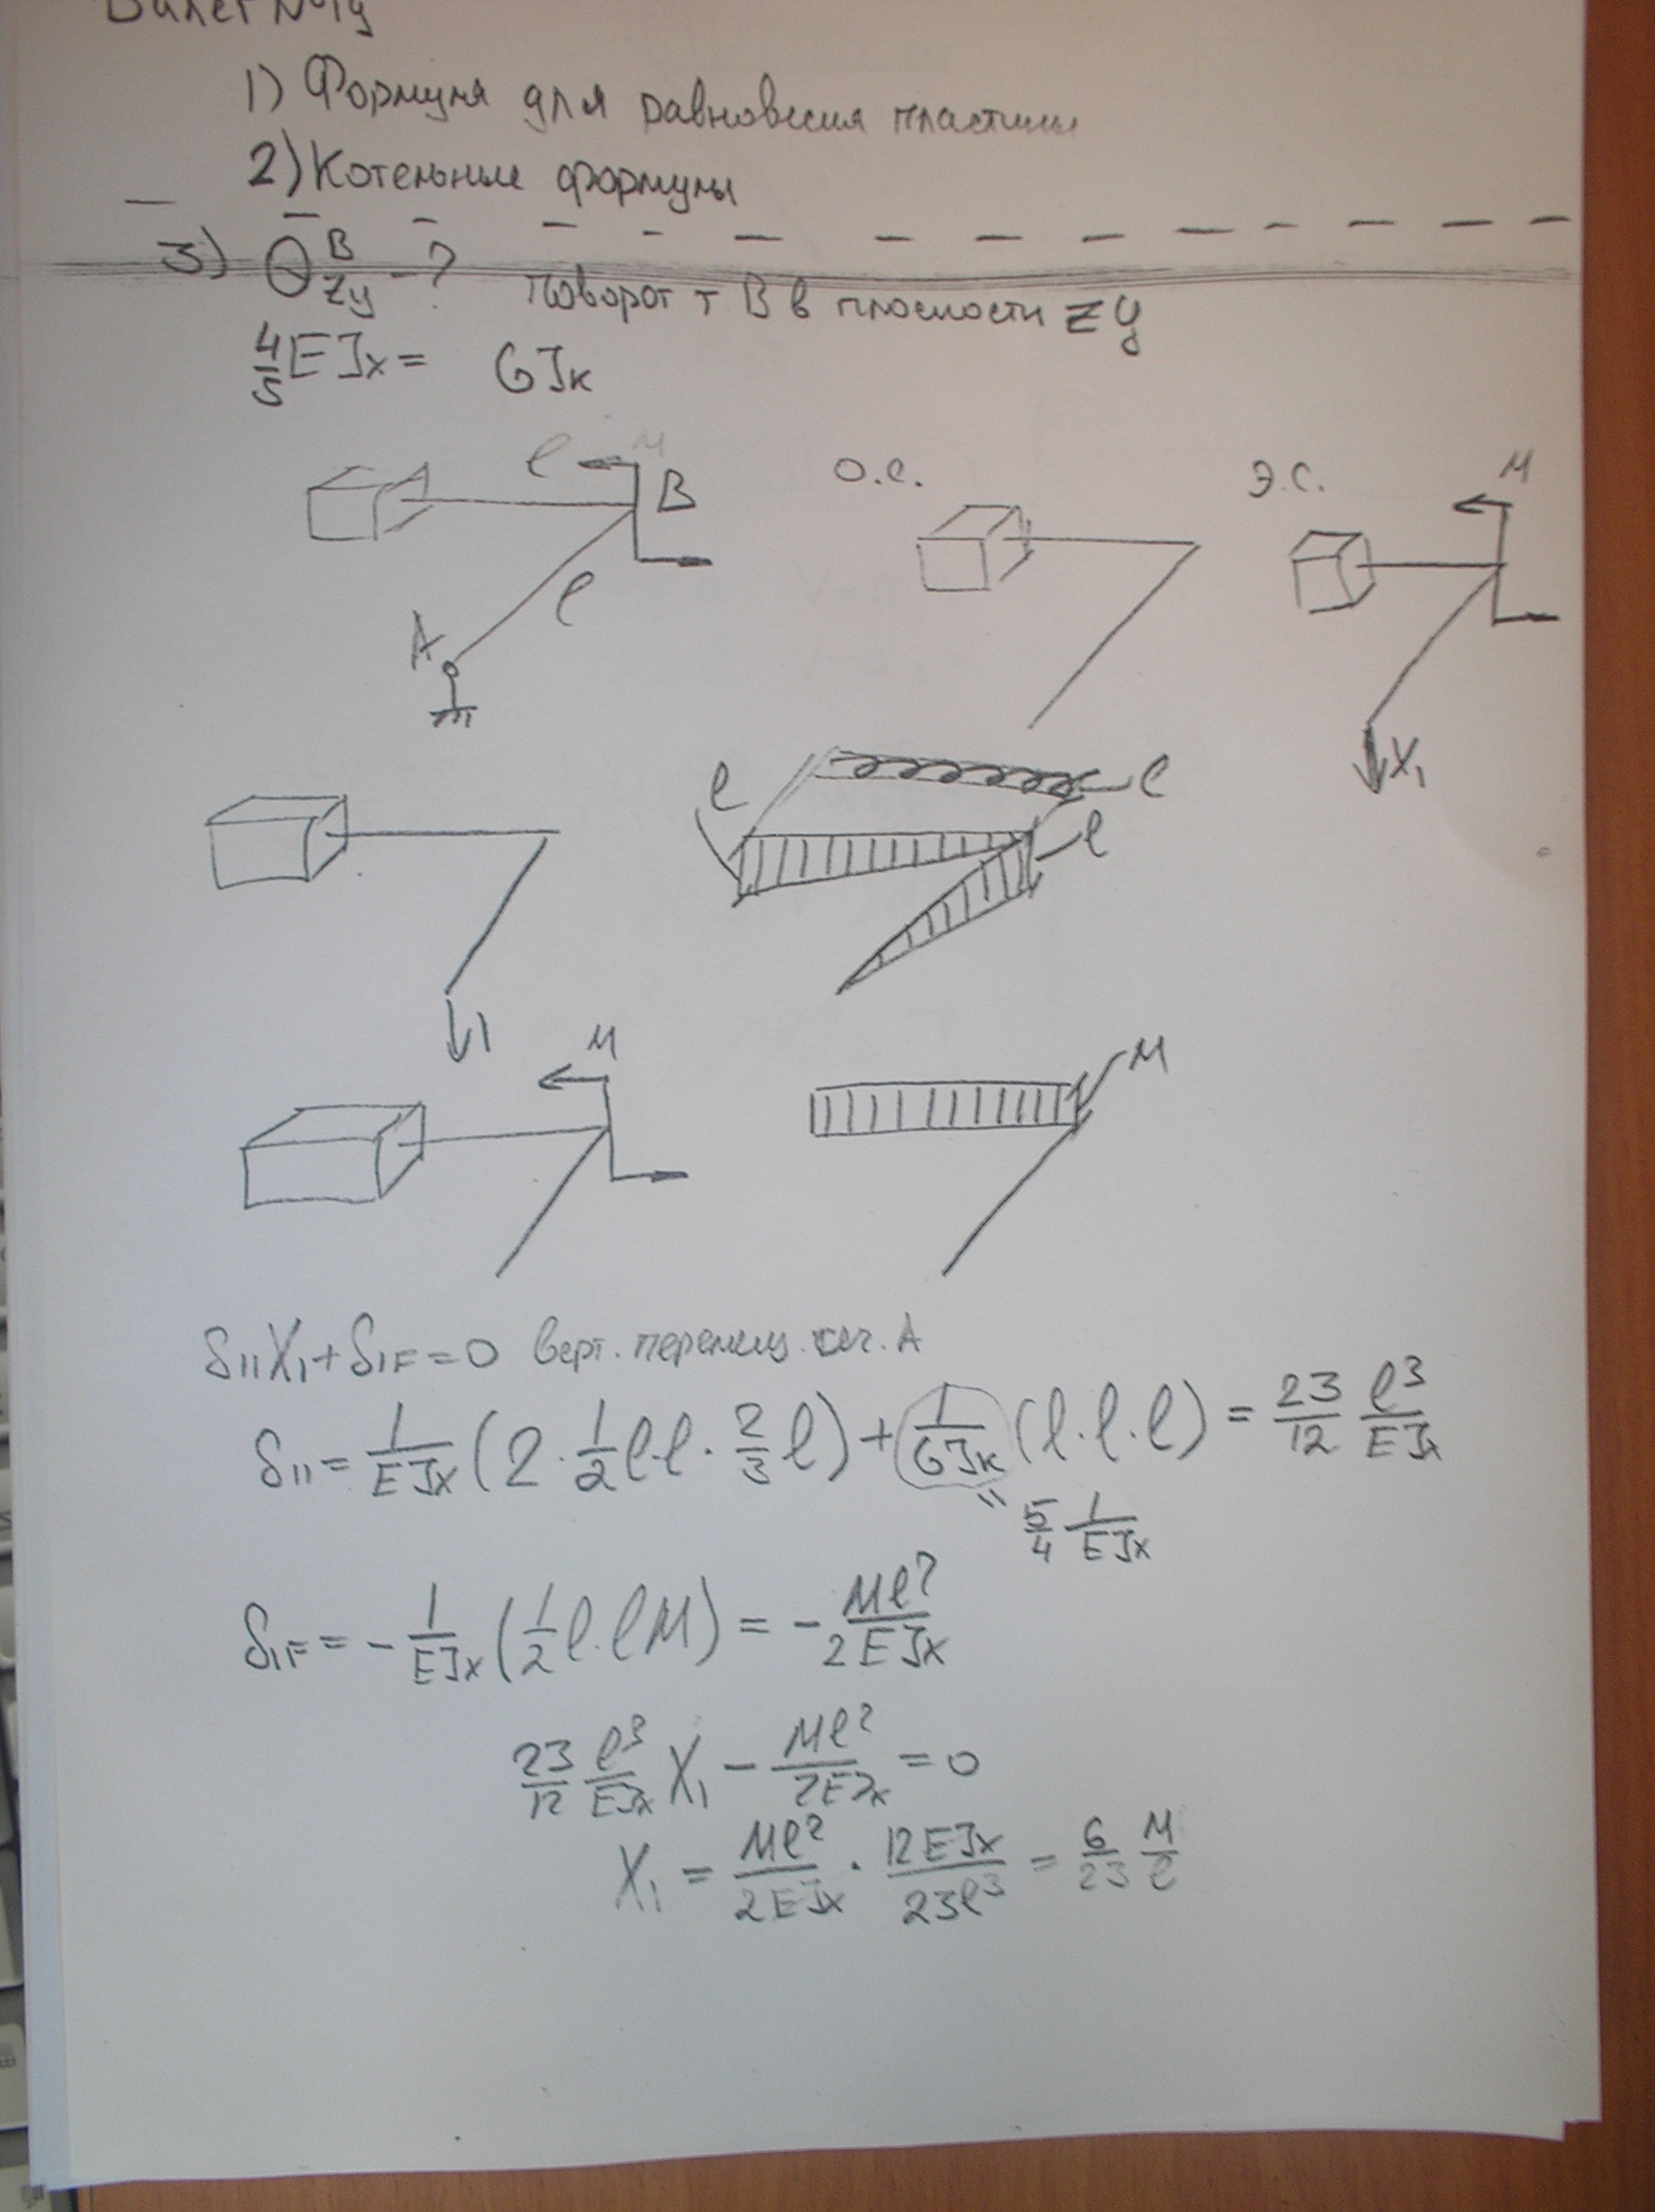 Билет №19
1) Формула для равновесия пластины
2) Котельные формулы
3) Θ^B_zy - ? Поворот т B в плоскости zy
4/5 EJx = GJк
l M B О.С. Э.С. M
A l X₁
l l l
1
M M
δ₁₁X₁ + δ₁F = 0 верт. перемещ. A
δ₁₁ = 1/EJx (2 · 1/2 l·l · 2/3 l) + 1/GJк (l · l · l) = 23/12 l³/EJx
" 5/4 1/EJx
δ₁F = - 1/EJx (1/2 l · l M) = - Ml²/2EJx
23/12 l³/EJx X₁ - Ml²/2EJx = 0
X₁ = Ml²/2EJx · 12EJx/23l³ = 6/23 M/l